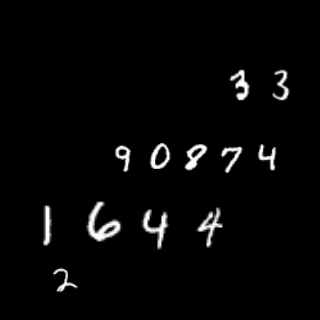 3 3
9 0 8 7 4
1 6 4 4
2